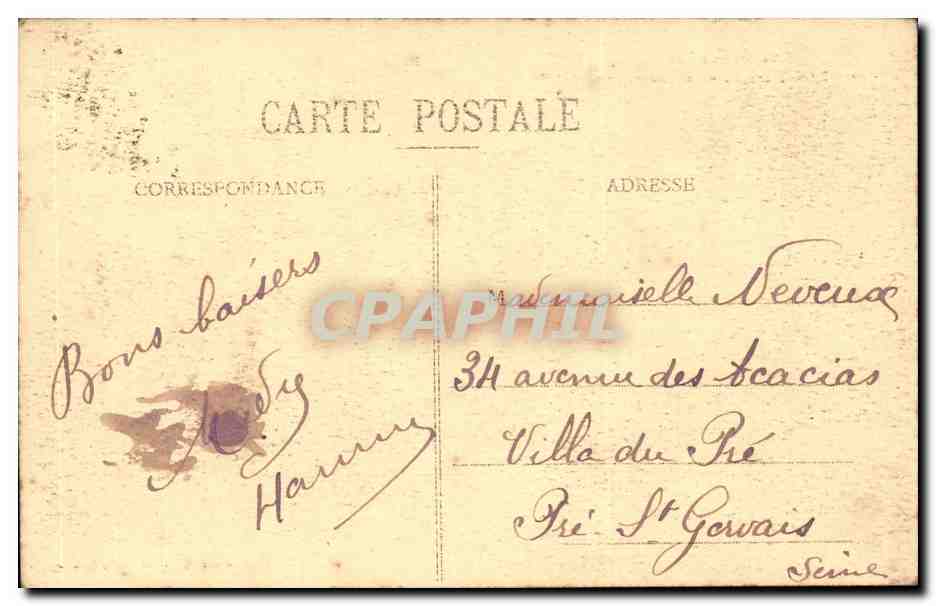 CARTE POSTALE
CORRESPONDANCE
ADRESSE
Bons baisers
Mademoiselle Neveux
34 avenue des Acacias
Villa du Pré
Pré St Gervais
Seine
CPAPHIL